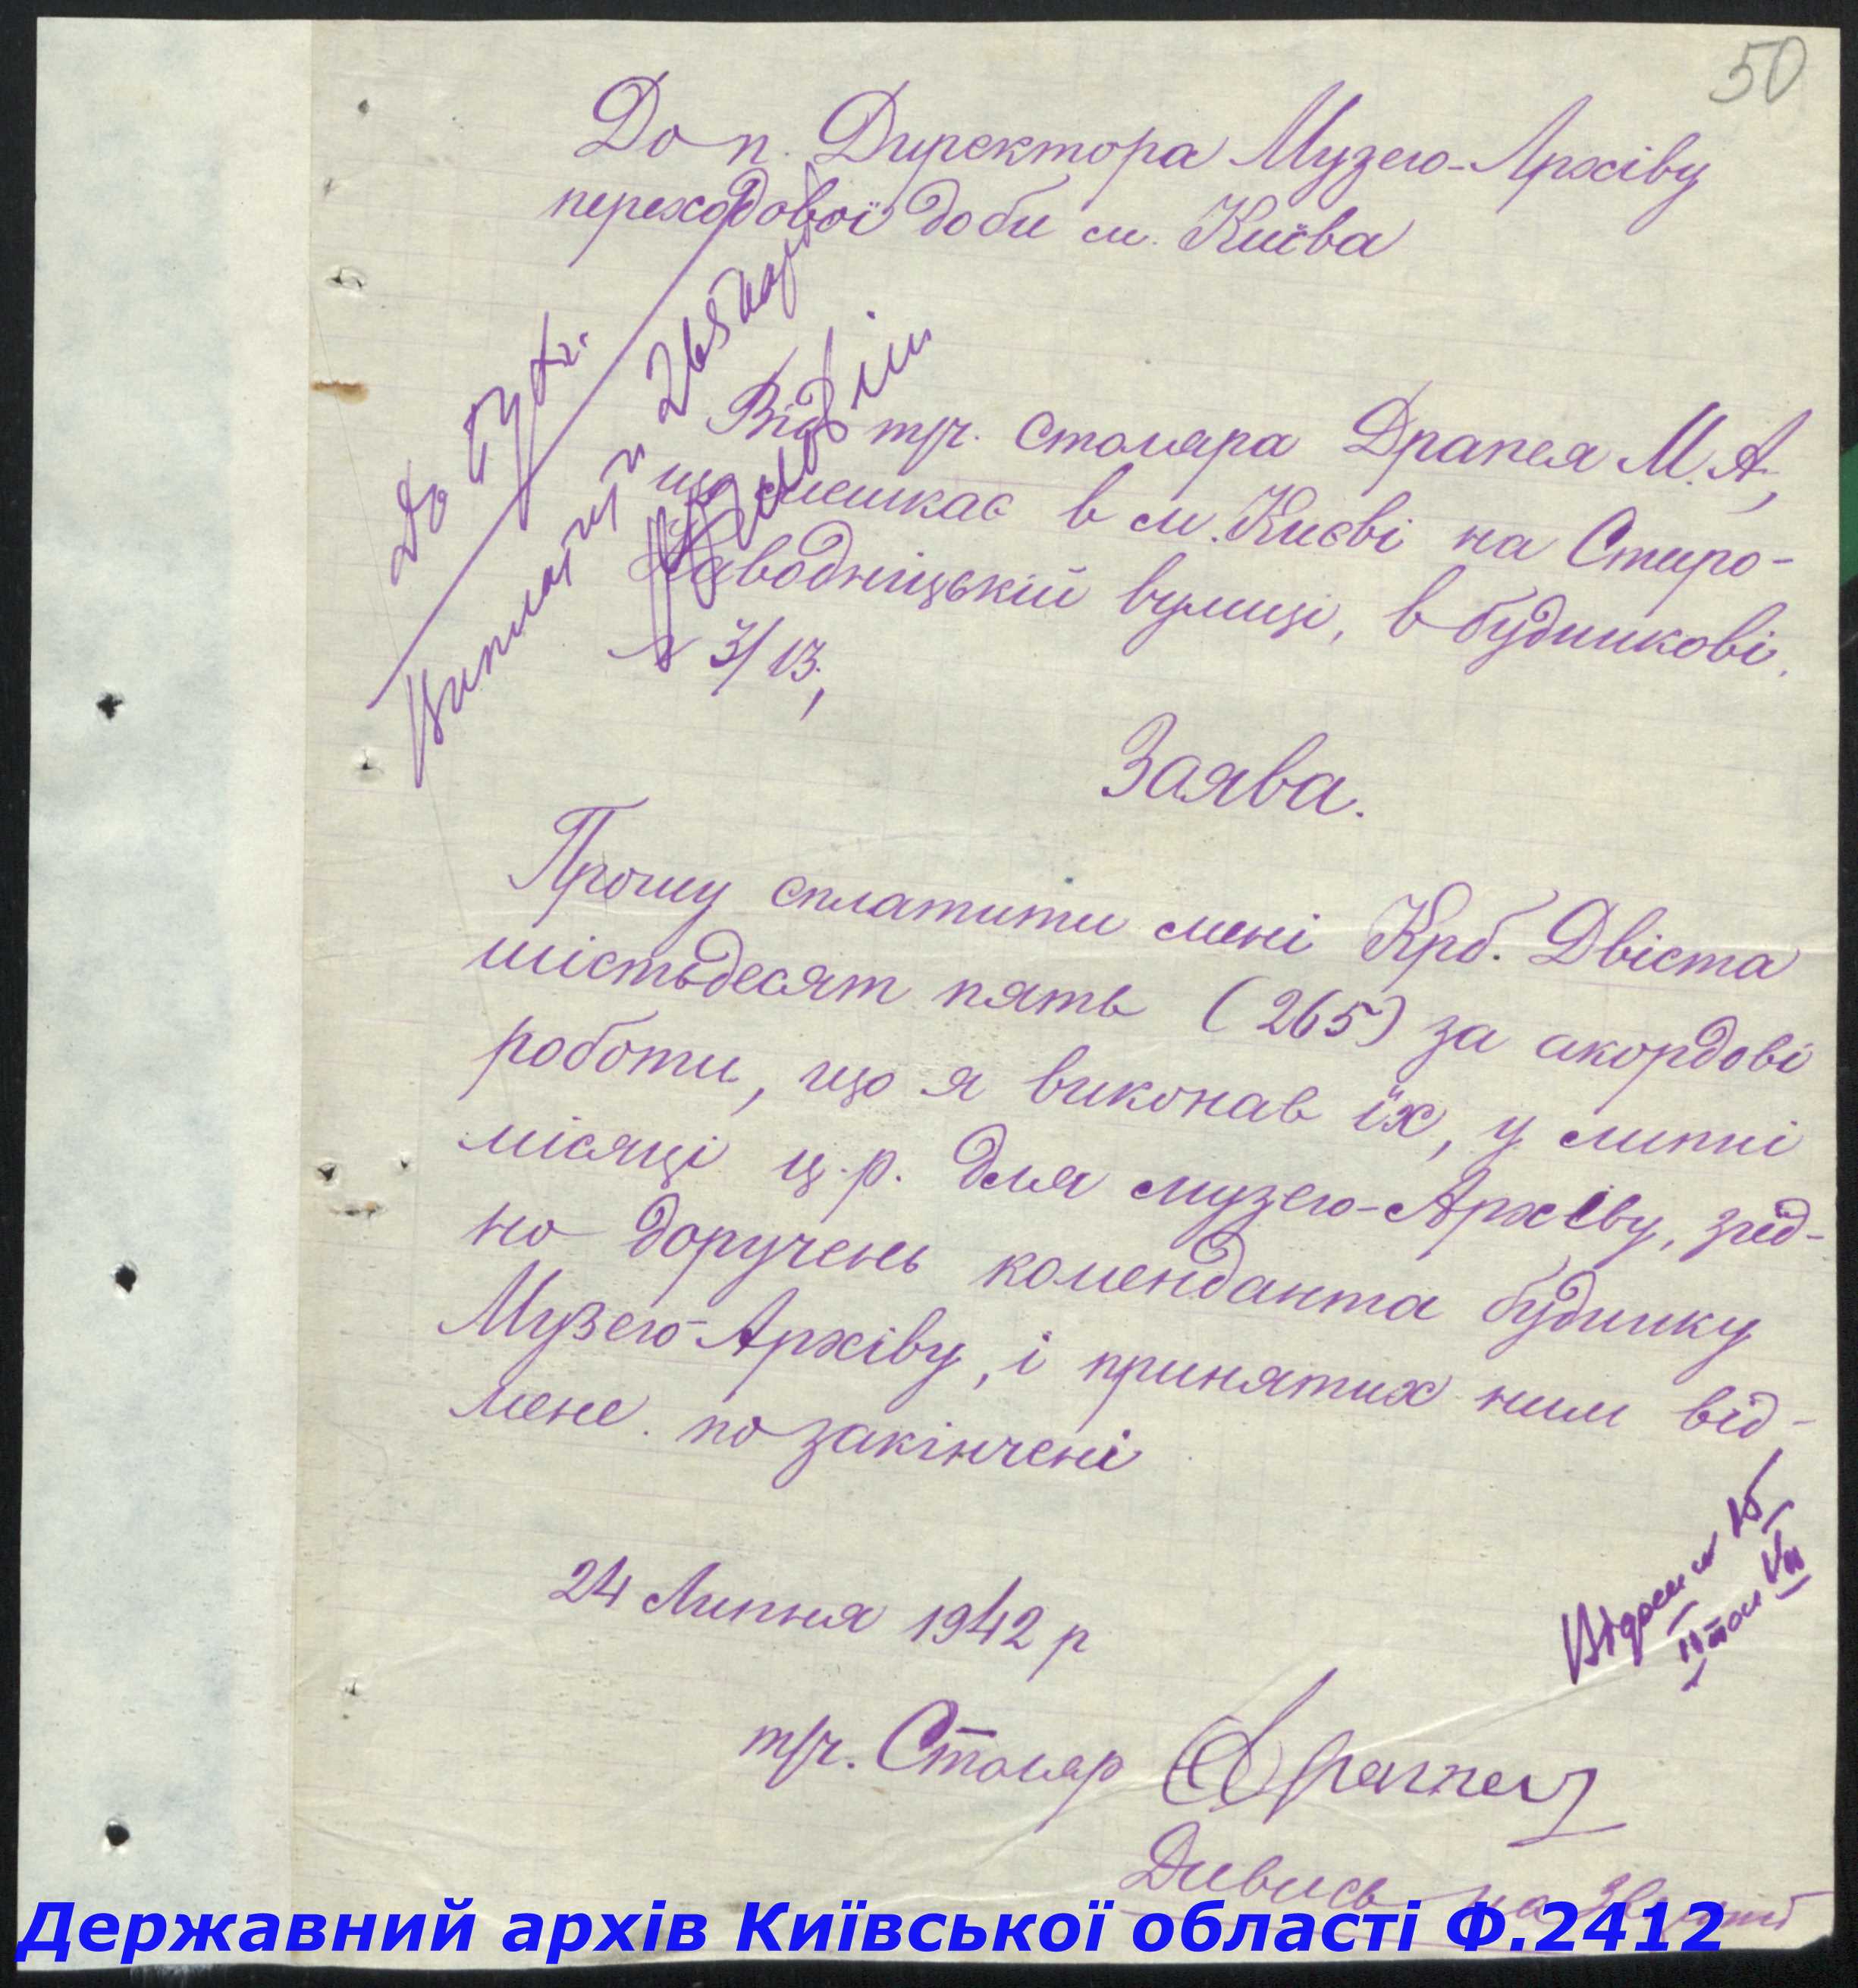 50
До п. Директора Музею-Архіву
переходової доби м. Київа
До
Виплатити 265 карб
Від тр. столяра Драпея М. А,
що мешкає в м. Києві на Старо-
Наводницькій вулиці, в будинкові.
№ 3/13;
Заява.
Прошу сплатити мені Крб. Двіста
шістьдесят пять (265) за акордові
роботи, що я виконав їх, у липні
місяці ц.р. для музею-Архіву, згід-
но доручень коменданта будинку
Музею-Архіву, і принятих ним від-
мене. по закінчені
24 Липня 1942 р
тр. Столяр Драпей
Дивись на
Державний архів Київської області Ф.2412